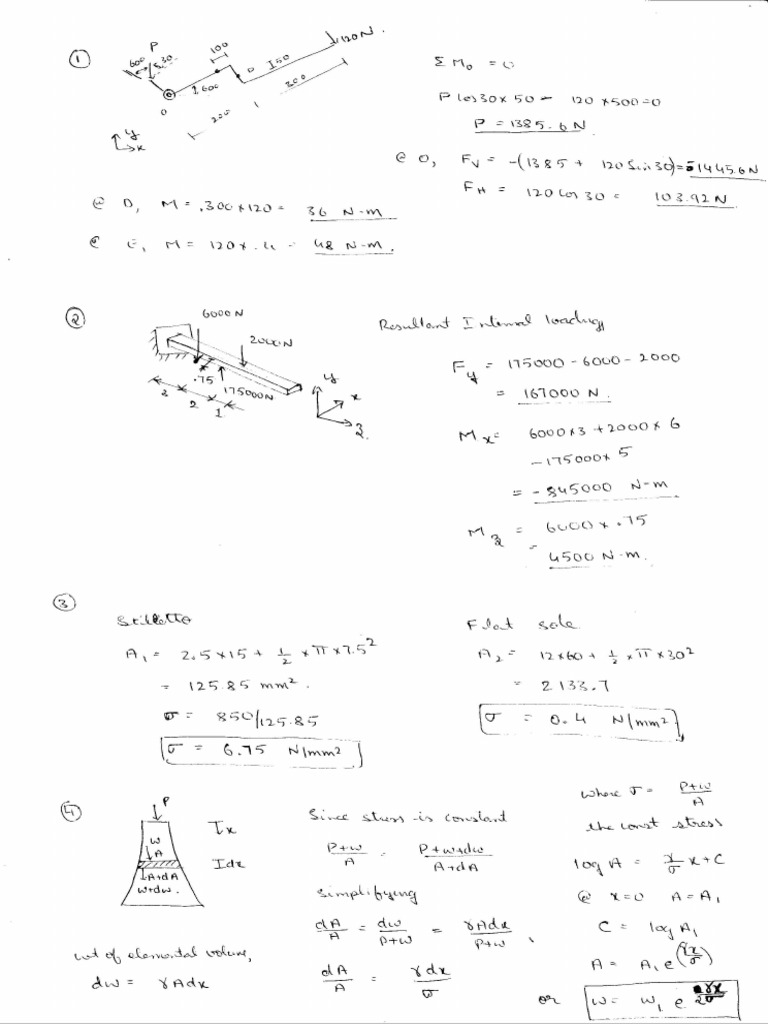 ①
P
600
30
100
120N.
150
D
200
300
200
O
y
x
Σ M₀ = 0
P cos30 x 50 - 120 x 500 = 0
P = 1385.6 N
@ O, Fv = -(1385 + 120 Sin 30) = -1445.6N
FH = 120 cos 30 = 103.92 N.
@ D, M = .300 x 120 = 36 N-m
@ E, M = 120 x .4 = 48 N-m.
②
6000 N
2000N
.75
175000N
3
2
1
y
x
z
Resultant Internal loading
Fy = 175000 - 6000 - 2000
= 167000 N.
Mx = 6000x3 + 2000 x 6
- 175000 x 5
= - 845000 N-m
Mz = 6000 x .75
= 4500 N-m.
③
Stilletto
A₁ = 2.5 x 15 + 1/2 x π x 7.5²
= 125.85 mm².
σ = 850/125.85
σ = 6.75 N/mm²
Flat sole
A₂ = 12x60 + 1/2 x π x 30²
= 2133.7
σ = 0.4 N/mm²
④
P
W
A
A+dA
W+dw.
Ix
Idx
wt of elemental volume,
dw = γAdx
Since stress is constant
P+w/A = P+w+dw/A+dA
Simplifying
dA/A = dw/P+w = γAdx/P+w,
dA/A = γdx/σ
where σ = P+w/A
the const stress
log A = γ/σ x + C
@ x=0 A = A₁
C = log A₁
A = A₁ e^(γx/σ)
or w = w₁ e^γx/2σ